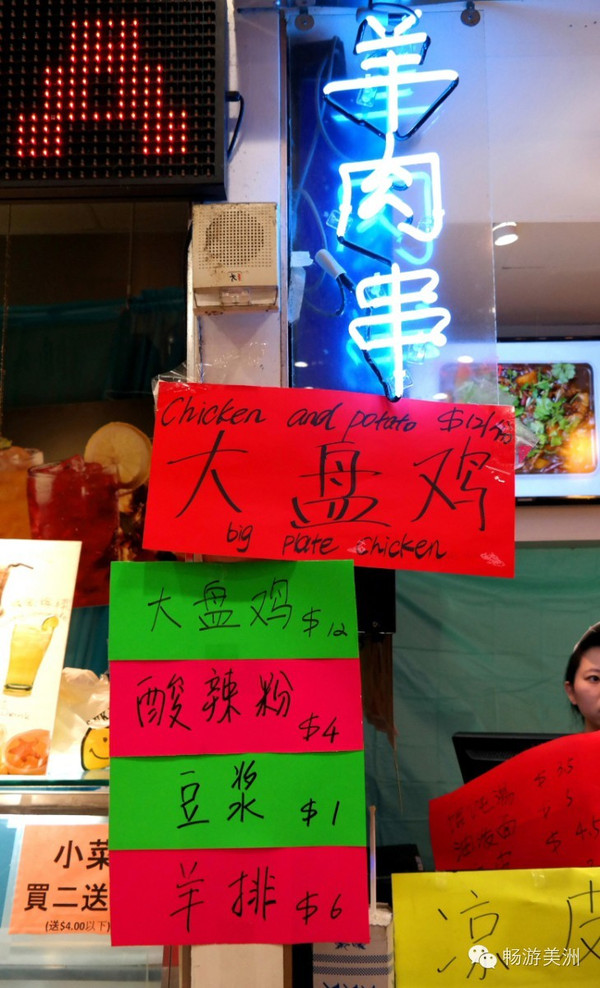 羊肉串
Chicken and potato $12/份
大盘鸡
big plate chicken
大盘鸡 $12
酸辣粉 $4
豆浆 $1
羊排 $6
小菜
買二送
(送$4.00以下)
凉皮
畅游美洲